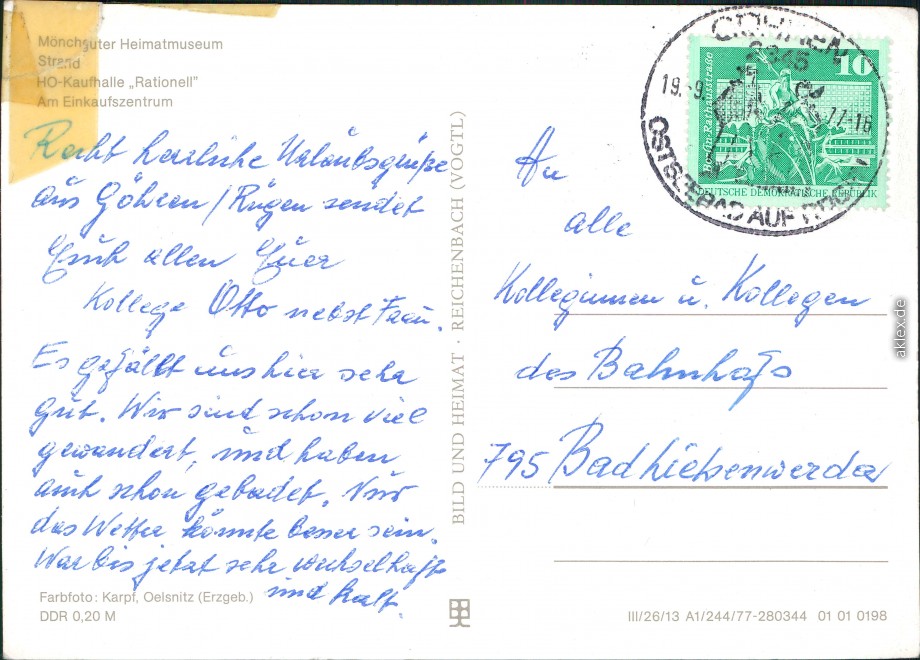 Mönchguter Heimatmuseum
Strand
HO-Kaufhalle „Rationell"
Am Einkaufszentrum
Recht herzliche Urlaubsgrüße
aus Göhren/Rügen sendet
Euch allen Euer
Kollege Otto nebst Frau.
Es gefällt uns hier sehr
gut. Wir sind schon viel
gewandert, und haben
auch schon gebadet. Nur
das Wetter könnte besser sein.
War bis jetzt sehr wechselhaft
und kalt.
Farbfoto: Karpf, Oelsnitz (Erzgeb.)
DDR 0,20 M
BILD UND HEIMAT · REICHENBACH (VOGTL)
GÖHREN
19.-9. 77-16
OSTSEEBAD AUF RÜGEN
10
Berlin-Rathausstraße
DEUTSCHE DEMOKRATISCHE REPUBLIK
An
alle
Kolleginnen u. Kollegen
des Bahnhofs
795 Bad Liebenwerda
III/26/13 A1/244/77-280344 01 01 0198
aklex.de